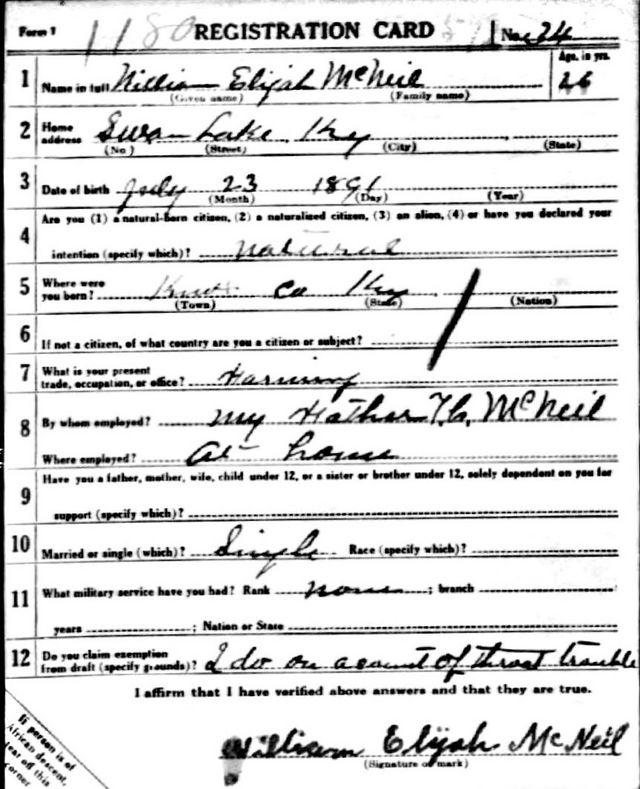 Form 1 1180 REGISTRATION CARD No. 24
Age, in yrs.
1 Name in full William Elijah McNeil 26
(Given name) (Family name)
2 Home address Swan Lake Ky
(No) (Street) (City) (State)
3 Date of birth July 23 1891
(Month) (Day) (Year)
Are you (1) a natural-born citizen, (2) a naturalized citizen, (3) an alien, (4) or have you declared your
4 intention (specify which)? natural
5 Where were you born? Knox Co Ky
(Town) (State) (Nation)
6 If not a citizen, of what country are you a citizen or subject?
7 What is your present trade, occupation, or office? Farming
8 By whom employed? my Father McNeil
Where employed? at home
9 Have you a father, mother, wife, child under 12, or a sister or brother under 12, solely dependent on you for
support (specify which)?
10 Married or single (which)? Single Race (specify which)?
11 What military service have you had? Rank none ; branch
years ; Nation or State
12 Do you claim exemption from draft (specify grounds)? I do on acount of throat trouble
I affirm that I have verified above answers and that they are true.
William Elijah McNeil
(Signature or mark)
If person is of
African descent,
tear off this
corner